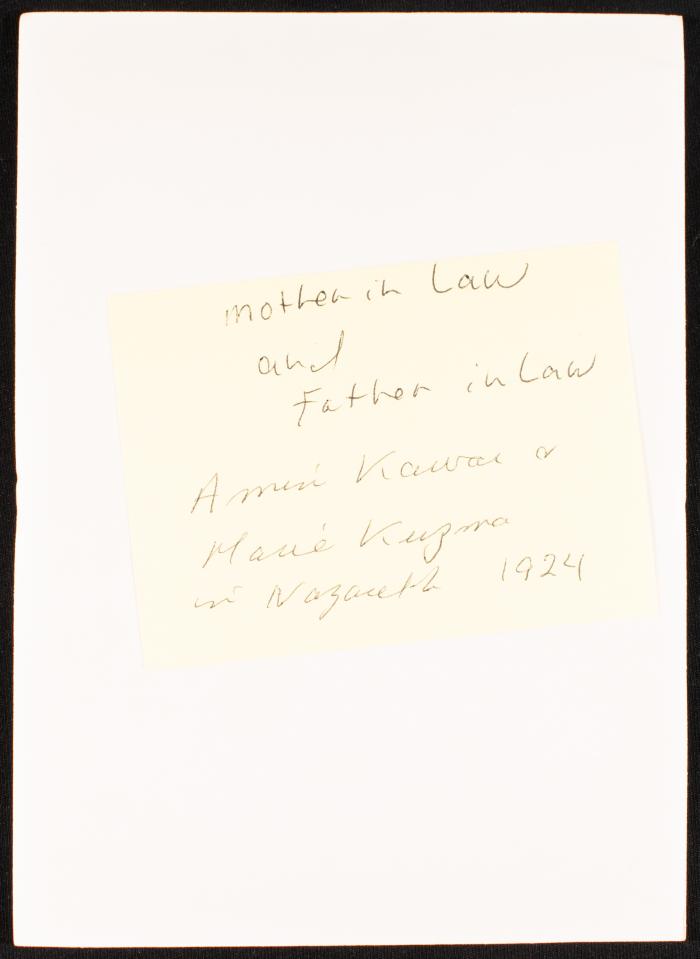 mother in Law
and
Father in Law
Amin Kawar &
Marié Kuzma
in Nazareth 1924